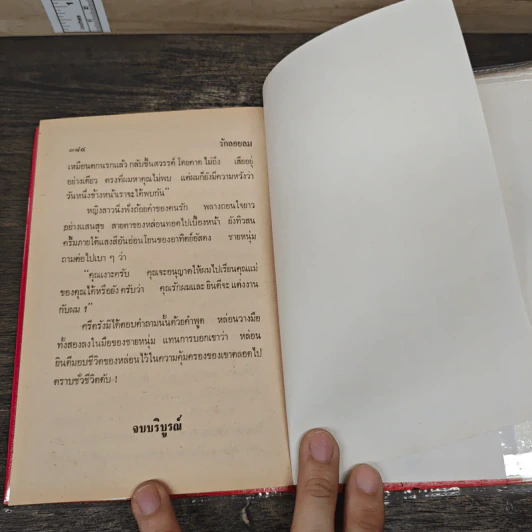 ๓๘๔ รักลอยลม
เหมือนตกนรกแล้ว กลับขึ้นสวรรค์ โดยคาด ไม่ถึง เสียอยู่
อย่างเดียว ตรงที่ผมหาคุณไม่พบ แต่ผมก็ยังมีความหวังว่า
วันหนึ่งข้างหน้าเราจะได้พบกัน”
หญิงสาวนิ่งฟังถ้อยคำของคนรัก พลางถอนใจยาว
อย่างแสนสุข สายตาของหล่อนทอดไปเบื้องหน้า ยังทิวสน
ครึ้มภายใต้แสงสีอันอ่อนโยนของอาทิตย์อัสดง ชายหนุ่ม
ถามต่อไปเบา ๆ ว่า
“คุณเงาะครับ คุณจะอนุญาตให้ผมไปเรียนคุณแม่
ของคุณได้หรือยัง ครับว่า คุณรักผมและ ยินดีจะ แต่งงาน
กับผม ?”
ศรีตรังมิได้ตอบคำถามนั้นด้วยคำพูด หล่อนวางมือ
ทั้งสองลงในมือของชายหนุ่ม แทนการบอกเขาว่า หล่อน
ยินดีมอบชีวิตของหล่อนไว้ในความคุ้มครองของเขาตลอดไป
ตราบชั่วชีวิตดับ !
จบบริบูรณ์